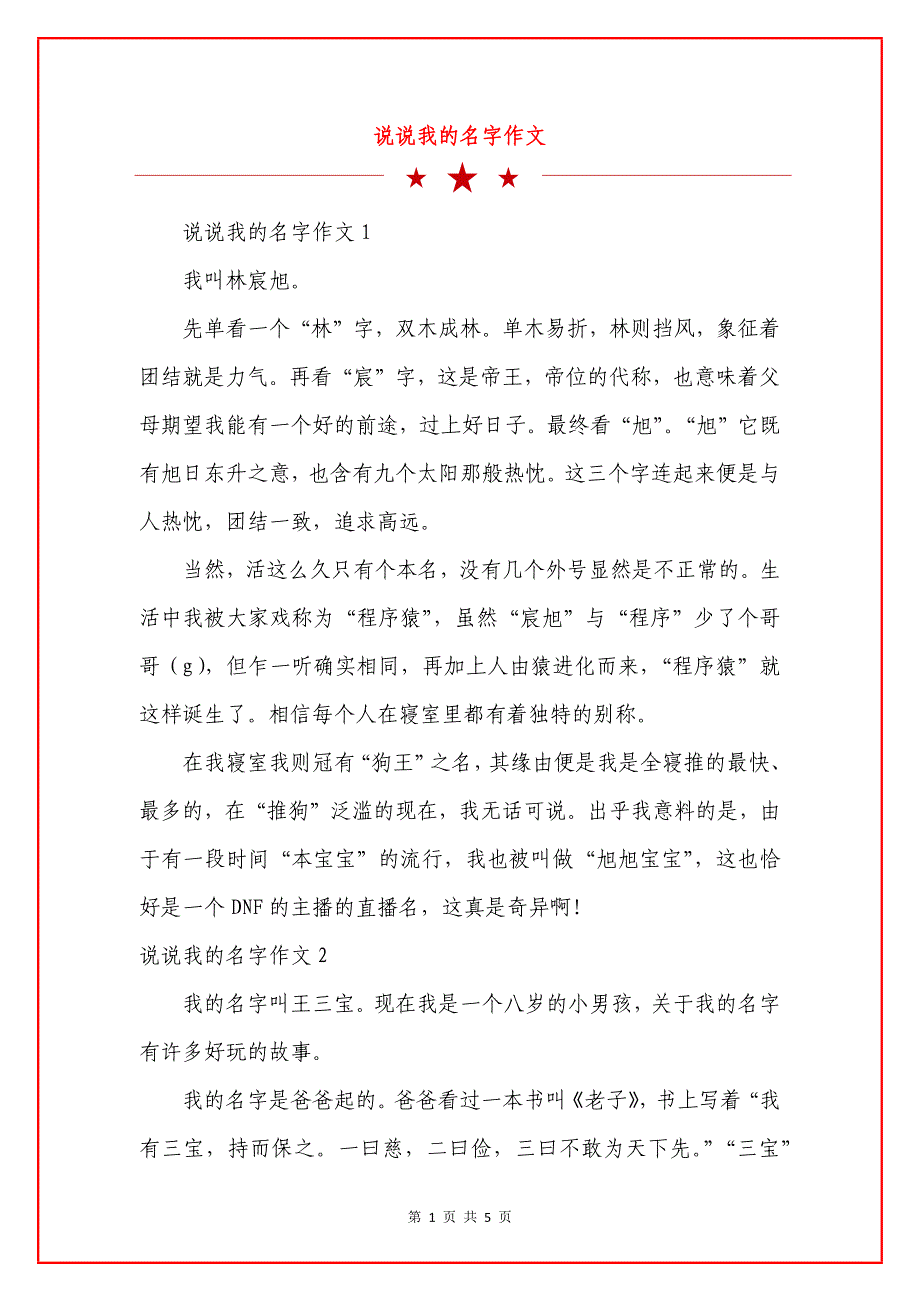 说说我的名字作文
说说我的名字作文 1
我叫林宸旭。
先单看一个“林”字，双木成林。单木易折，林则挡风，象征着
团结就是力气。再看“宸”字，这是帝王，帝位的代称，也意味着父
母期望我能有一个好的前途，过上好日子。最终看“旭”。“旭”它既
有旭日东升之意，也含有九个太阳那般热忱。这三个字连起来便是与
人热忱，团结一致，追求高远。
当然，活这么久只有个本名，没有几个外号显然是不正常的。生
活中我被大家戏称为“程序猿”，虽然“宸旭”与“程序”少了个哥
哥（g），但乍一听确实相同，再加上人由猿进化而来，“程序猿”就
这样诞生了。相信每个人在寝室里都有着独特的别称。
在我寝室我则冠有“狗王”之名，其缘由便是我是全寝推的最快、
最多的，在“推狗”泛滥的现在，我无话可说。出乎我意料的是，由
于有一段时间“本宝宝”的流行，我也被叫做“旭旭宝宝”，这也恰
好是一个 DNF 的主播的直播名，这真是奇异啊！
说说我的名字作文 2
我的名字叫王三宝。现在我是一个八岁的小男孩，关于我的名字
有许多好玩的故事。
我的名字是爸爸起的。爸爸看过一本书叫《老子》，书上写着“我
有三宝，持而保之。一曰慈，二曰俭，三曰不敢为天下先。”“三宝”
第 1 页 共 5 页